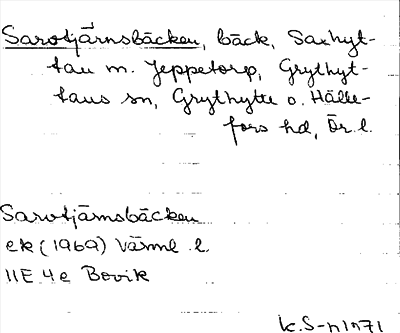 Sarotjärnsbäcken, bäck, Saxhyt-
tan m. Jeppetorp, Grythyt-
tans sn, Grythytte o. Hälle-
fors hd, Ör. l.
Sarotjärnsbäcken
ek (1969) Värml. l.
11E 4e Bovik
K.S-n 1971